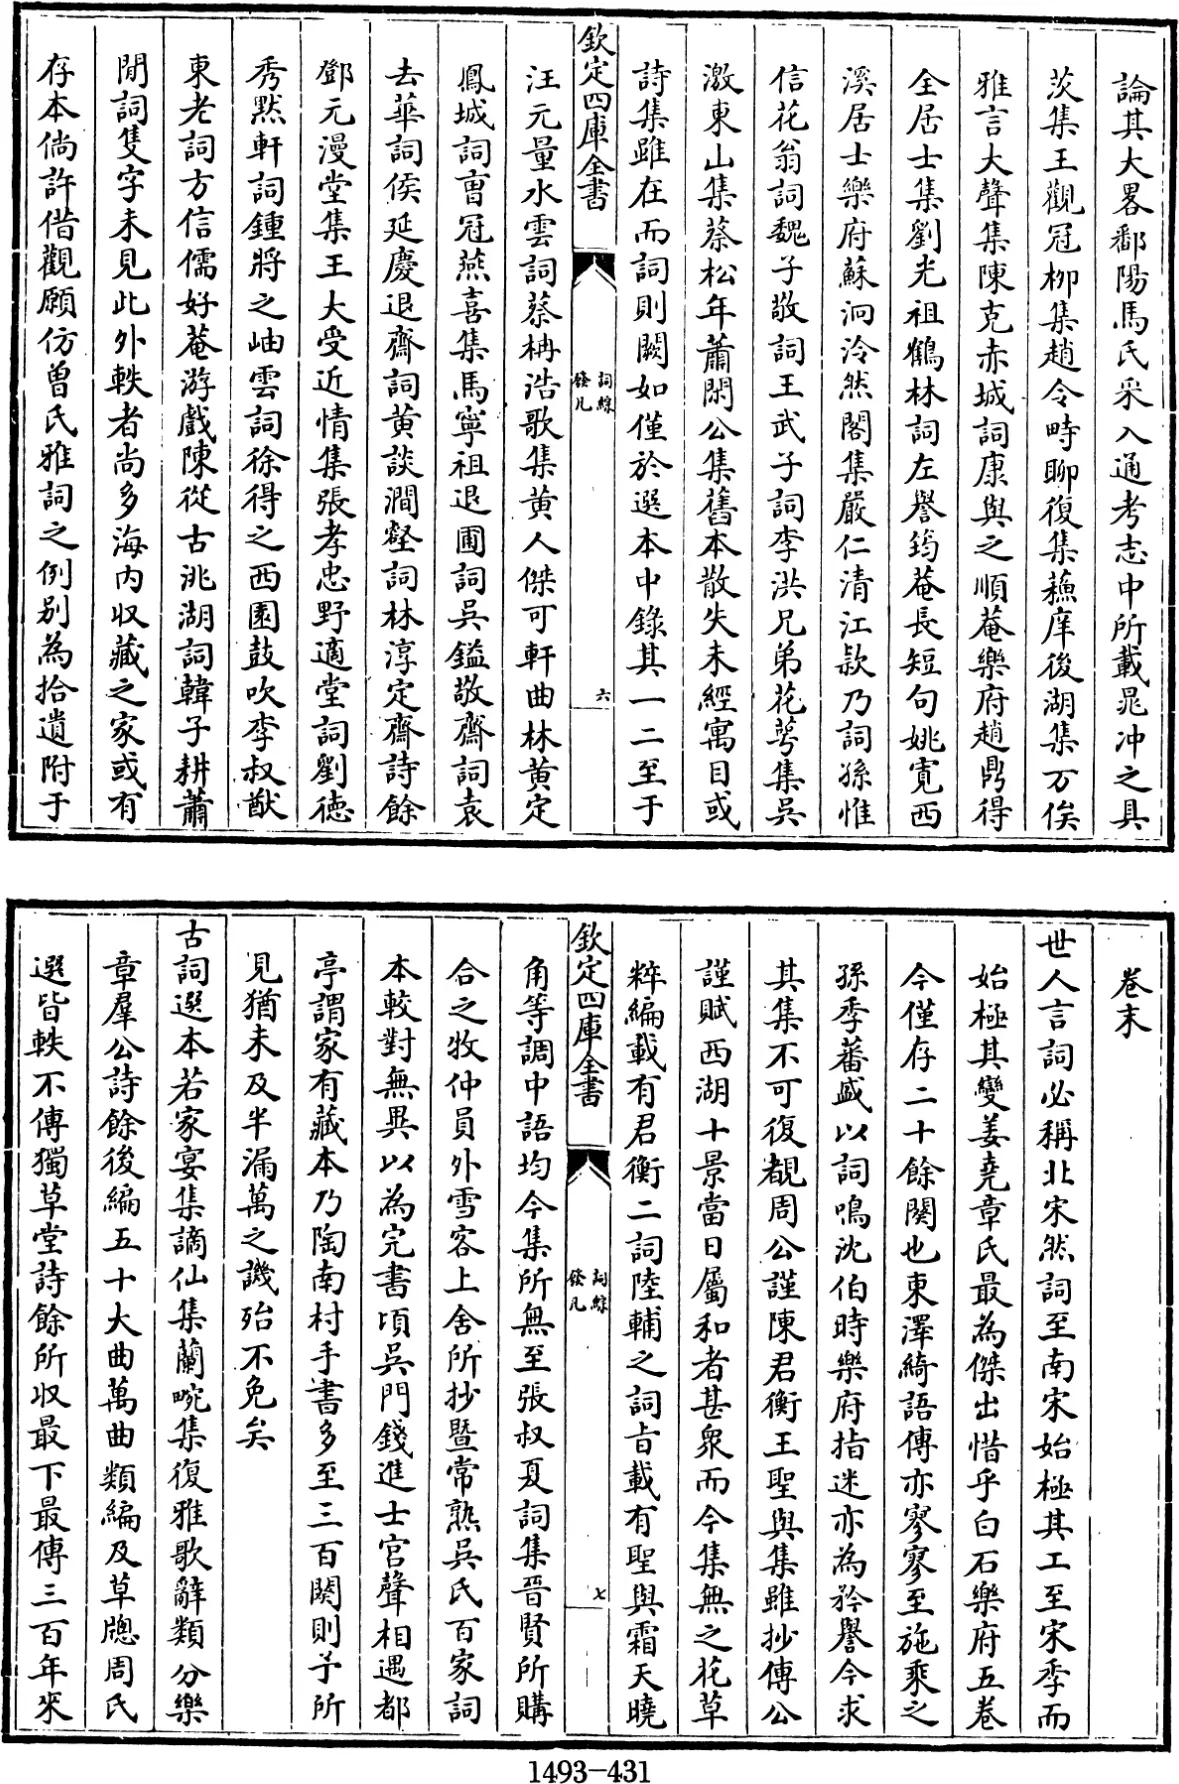 論其大畧鄱陽馬氏采入通考志中所載晁冲之具
茨集王觀冠栁集趙令畤聊復集蘓庠後湖集万俟
雅言大聲集陳克赤城詞康與之順菴樂府趙鼎得
全居士集劉光祖鶴林詞左譽筠菴長短句姚寛西
溪居士樂府蘇泂泠然閣集嚴仁清江欵乃詞孫惟
信花翁詞魏子敬詞王武子詞李洪兄弟花萼集吳
激東山集蔡松年蕭閑公集舊本散失未經寓目或
詩集雖在而詞則闕如僅於選本中錄其一二至于
欽定四庫全書
詞綜
發凡
六
汪元量水雲詞蔡柟浩歌集黄人傑可軒曲林黄定
鳳城詞曺冠燕喜集馬寧祖退圃詞吳鎰敬齋詞袁
去華詞侯延慶退齋詞黄談澗壑詞林淳定齋詩餘
鄧元漫堂集王大受近情集張孝忠野適堂詞劉徳
秀黙軒詞鍾將之岫雲詞徐得之西園鼓吹李叔猷
東老詞方信儒好菴游戲陳從古洮湖詞韓子耕蕭
閒詞隻字未見此外軼者尚多海内收藏之家或有
存本倘許借觀願仿曽氏雅詞之例别為拾遺附于
卷末
世人言詞必稱北宋然詞至南宋始極其工至宋季而
始極其變姜堯章氏最為傑出惜乎白石樂府五卷
今僅存二十餘闋也東澤綺語傳亦寥寥至施乘之
孫季蕃盛以詞鳴沈伯時樂府指迷亦為矜譽今求
其集不可復覩周公謹陳君衡王聖與集雖抄傳公
謹賦西湖十景當日屬和者甚衆而今集無之花草
粹編載有君衡二詞陸輔之詞㫖載有聖與霜天曉
欽定四庫全書
詞綜
發凡
七
角等調中語均今集所無至張叔夏詞集晋賢所購
合之牧仲員外雪客上舍所抄暨常熟吳氏百家詞
本較對無異以為完書頃吳門錢進士宫聲相遇都
亭謂家有藏本乃陶南村手書多至三百闋則予所
見猶未及半漏萬之譏殆不免矣
古詞選本若家宴集謫仙集蘭畹集復雅歌辭類分樂
章羣公詩餘後編五十大曲萬曲類編及草牕周氏
選皆軼不傳獨草堂詩餘所收最下最傳三百年來
1493-431